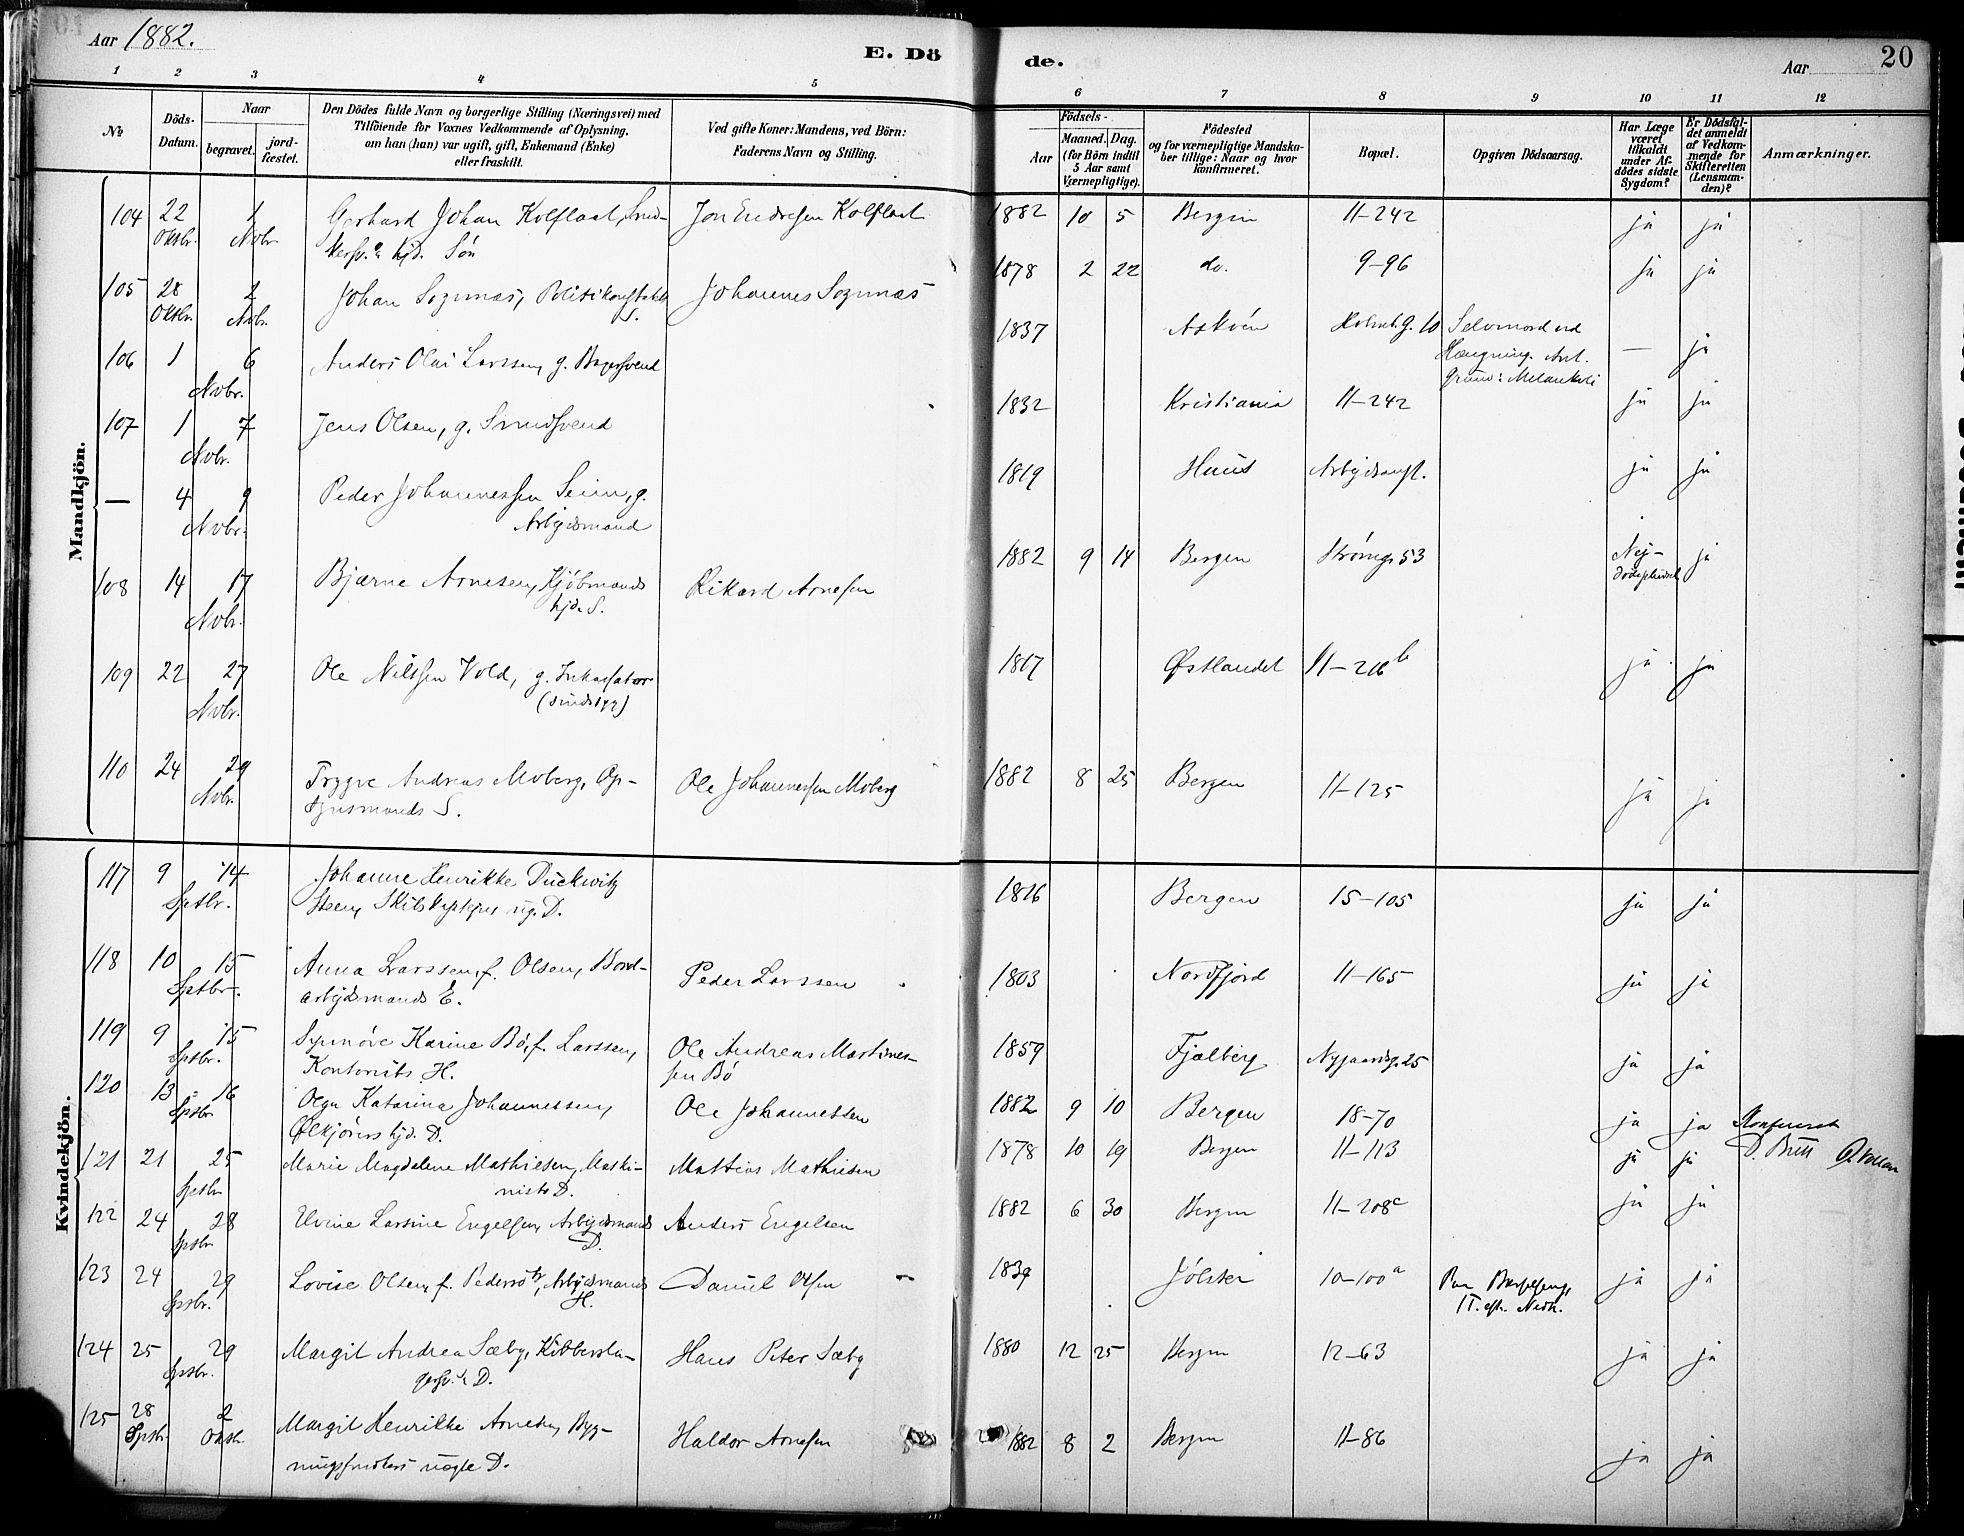 Aar 1882.
E. Döde.
Aar
20
1 2 3 4 5 6 7 8 9 10 11 12
№
Döds-Datum.
Naar
begravet.
jord-fæstet.
Den Dödes fulde Navn og borgerlige Stilling (Næringsvei) med
Tilföiende for Voxnes Vedkommende af Oplysning,
om han (hun) var ugift, gift, Enkemand (Enke)
eller fraskilt.
Ved gifte Koner: Mandens, ved Börn:
Faderens Navn og Stilling.
Födsels-
Aar
Maaned. Dag.
(for Börn indtil
5 Aar samt
Værnepligtige).
Födested
og for værnepligtige Mandska-
ber tillige: Naar og hvor
konfirmeret.
Bopæl.
Opgiven Dödsaarsag.
Har Læge
været
tilkaldt
under Af-
dödes sidste
Sygdom?
Er Dödsfal-
det anmeldt
af Vedkom-
mende for
Skifteretten
(Lensman-
den)?
Anmærkninger.
Mandkjön.
104 22 Oktbr. 1 Nvbr. Gerhard Johan Kolflaat, Sned-
kersv. hjd. Sön Jon Endresen Kolflaat 1882 10 5 Bergen 11-242 ja ja
105 28 Oktbr. 2 Nvbr. Johan Sognnæs, Politikonstabels
S. Johannes Sognnæs 1878 2 22 do. 9-96 ja ja
106 1 6 Nvbr. Anders Olai Larssen, g. Bagersvend 1837 Askvön 10 Selvmord ved
Hængning. Ant.
Grund: Melankoli — ja
107 1 7 Nvbr. Jens Olsen, g. Smedsvend 1832 Kristiania 11-242 ja ja
— 4 9 Nvbr. Peder Johannessen Seim, g.
Arbejdsmand 1819 Huus Arbejdsanst. ja ja
108 14 17 Nvbr. Bjarne Arnesen, Kjöbmands
hjd. S. Rikard Arnesen 1882 9 14 Bergen Strömg. 53 Nej- ja
109 22 27 Nvbr. Ole Nilssen Vold, g. Inkassator
(sindssyg) 1817 Østlandet 11-216b ja ja
110 24 29 Nvbr. Trygve Andreas Moberg, Op-
synsmands S. Ole Johannessen Moberg 1882 8 25 Bergen 11-125 ja ja
Kvindekjön.
117 9 14 Sptbr. Johanne Henrikke Duckwitz
Steen, ug. D. 1816 Bergen 15-105 ja ja
118 10 15 Sptbr. Anna Larssen, f. Olsen, Bord-
arbejdsmands E. Peder Larssen 1803 Nordfjord 11-165 ja ja
119 9 15 Sptbr. Synnöve Karine Bö, f. Larssen,
Kontorists H. Ole Andreas Martines-
sen Bö 1859 Fjælberg Nygaardsg. 25 ja ja
120 13 16 Sptbr. Olga Katarina Johannessen,
Ølkjörers hjd. D. Ole Johannessen 1882 9 10 Bergen 18-70 ja ja Konfereret
121 21 25 Sptbr. Marie Magdalene Mathiesen, Maski-
nists D. Mathias Mathiesen 1878 10 19 Bergen 11-113 ja ja D. Britt
122 24 28 Sptbr. Elvine Larsine Engelsen, Arbejdsmands
D. Anders Engelsen 1882 6 30 Bergen 11-208c ja ja
123 24 29 Sptbr. Lovise Olsen, f. Pedersdtr, Arbejdsmands
H. Daniel Olsen 1839 Jölster 10-100a Paa Barselseng,
11. eft. Nedk. ja ja
124 25 29 Sptbr. Margit Andrea Sæby, Kobbersla-
gersv. D. Hans Peter Sæby 1880 12 25 Bergen 12-63 ja ja
125 28 Sptbr. 2 Oktbr. Margit Henrikke Arnesen, Byg-
ningssnedkers uægte D. Haldor Arnesen 1882 8 2 Bergen 11-86 ja ja